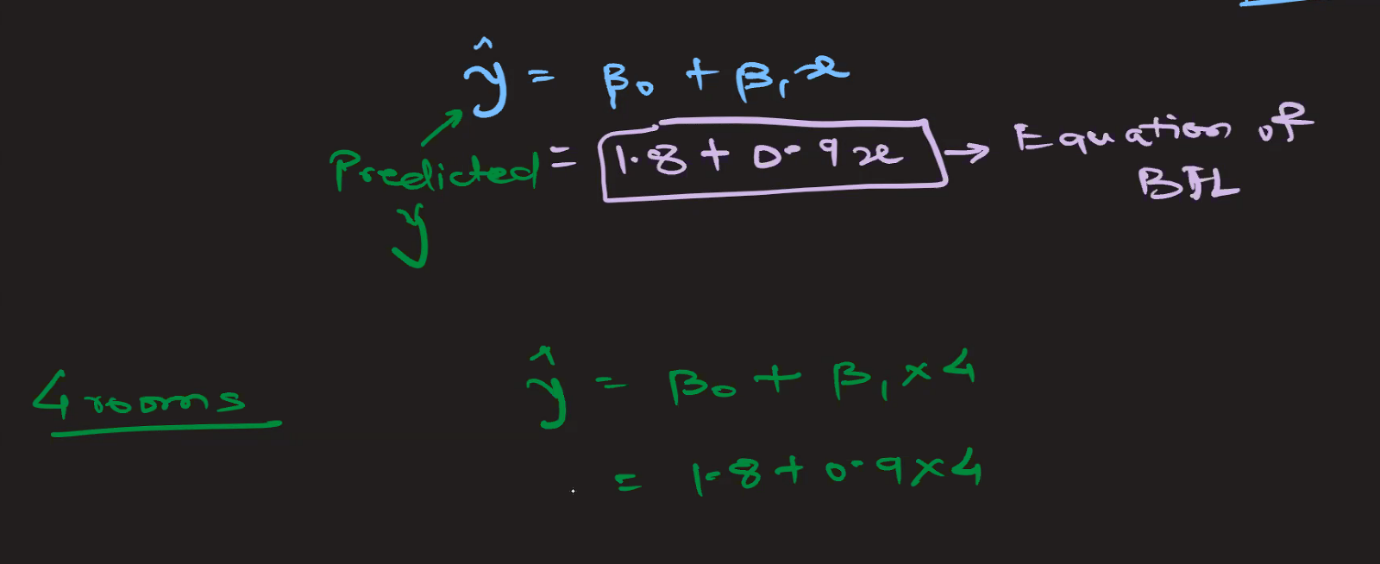 ŷ = β₀ + β₁x
Predicted y = 1.8 + 0.9x → Equation of BFL
4 rooms
ŷ = β₀ + β₁ × 4
= 1.8 + 0.9 × 4